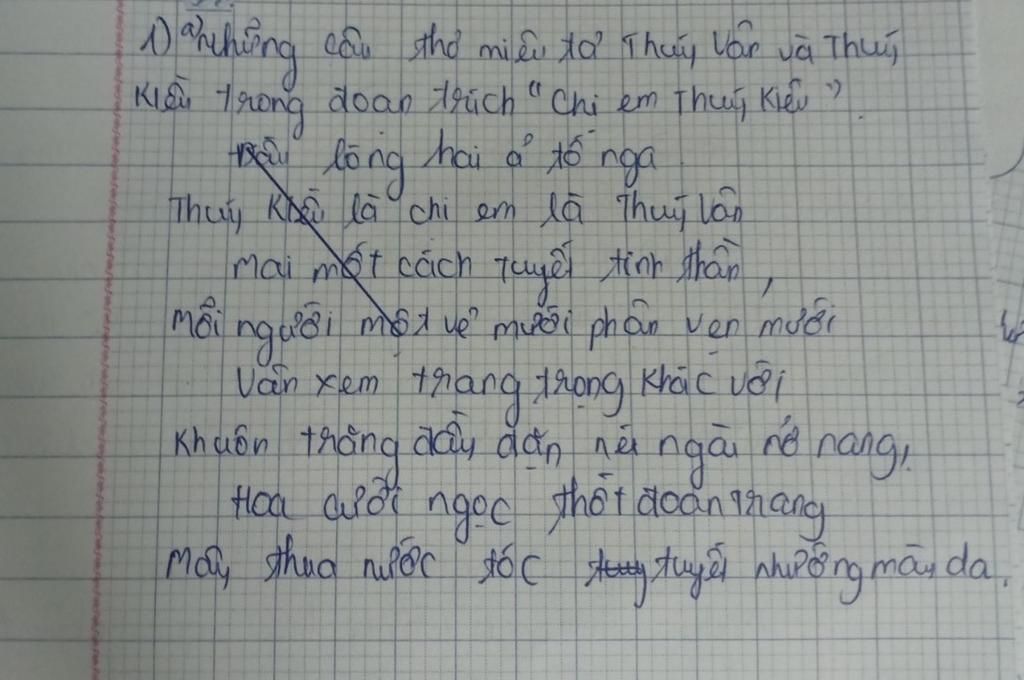 1) a) Những câu thơ miêu tả Thuý Vân và Thuý
Kiều trong đoan trích "Chi em Thuý Kiều"
Đầu lòng hai ả tố nga
Thuý Kiều là chi em là Thuý Vân
Mai một cách tuyết tinh thần,
Mỗi người một vẻ mười phân ven mười
Vân xem trang trọng khác vời
Khuôn trăng đầy đặn nét ngài nở nang,
Hoa cười ngọc thốt đoan trang
Mây thua nước tóc tuy tuyết nhường màu da.